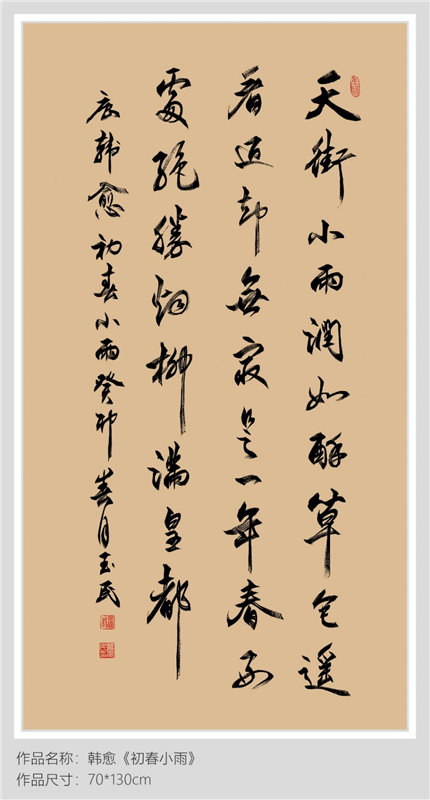 天街小雨潤如酥草色遥
看近却無最是一年春好
處絕勝烟柳滿皇都
唐韓愈初春小雨癸卯春月玉民
作品名称：韩愈《初春小雨》
作品尺寸：70*130cm